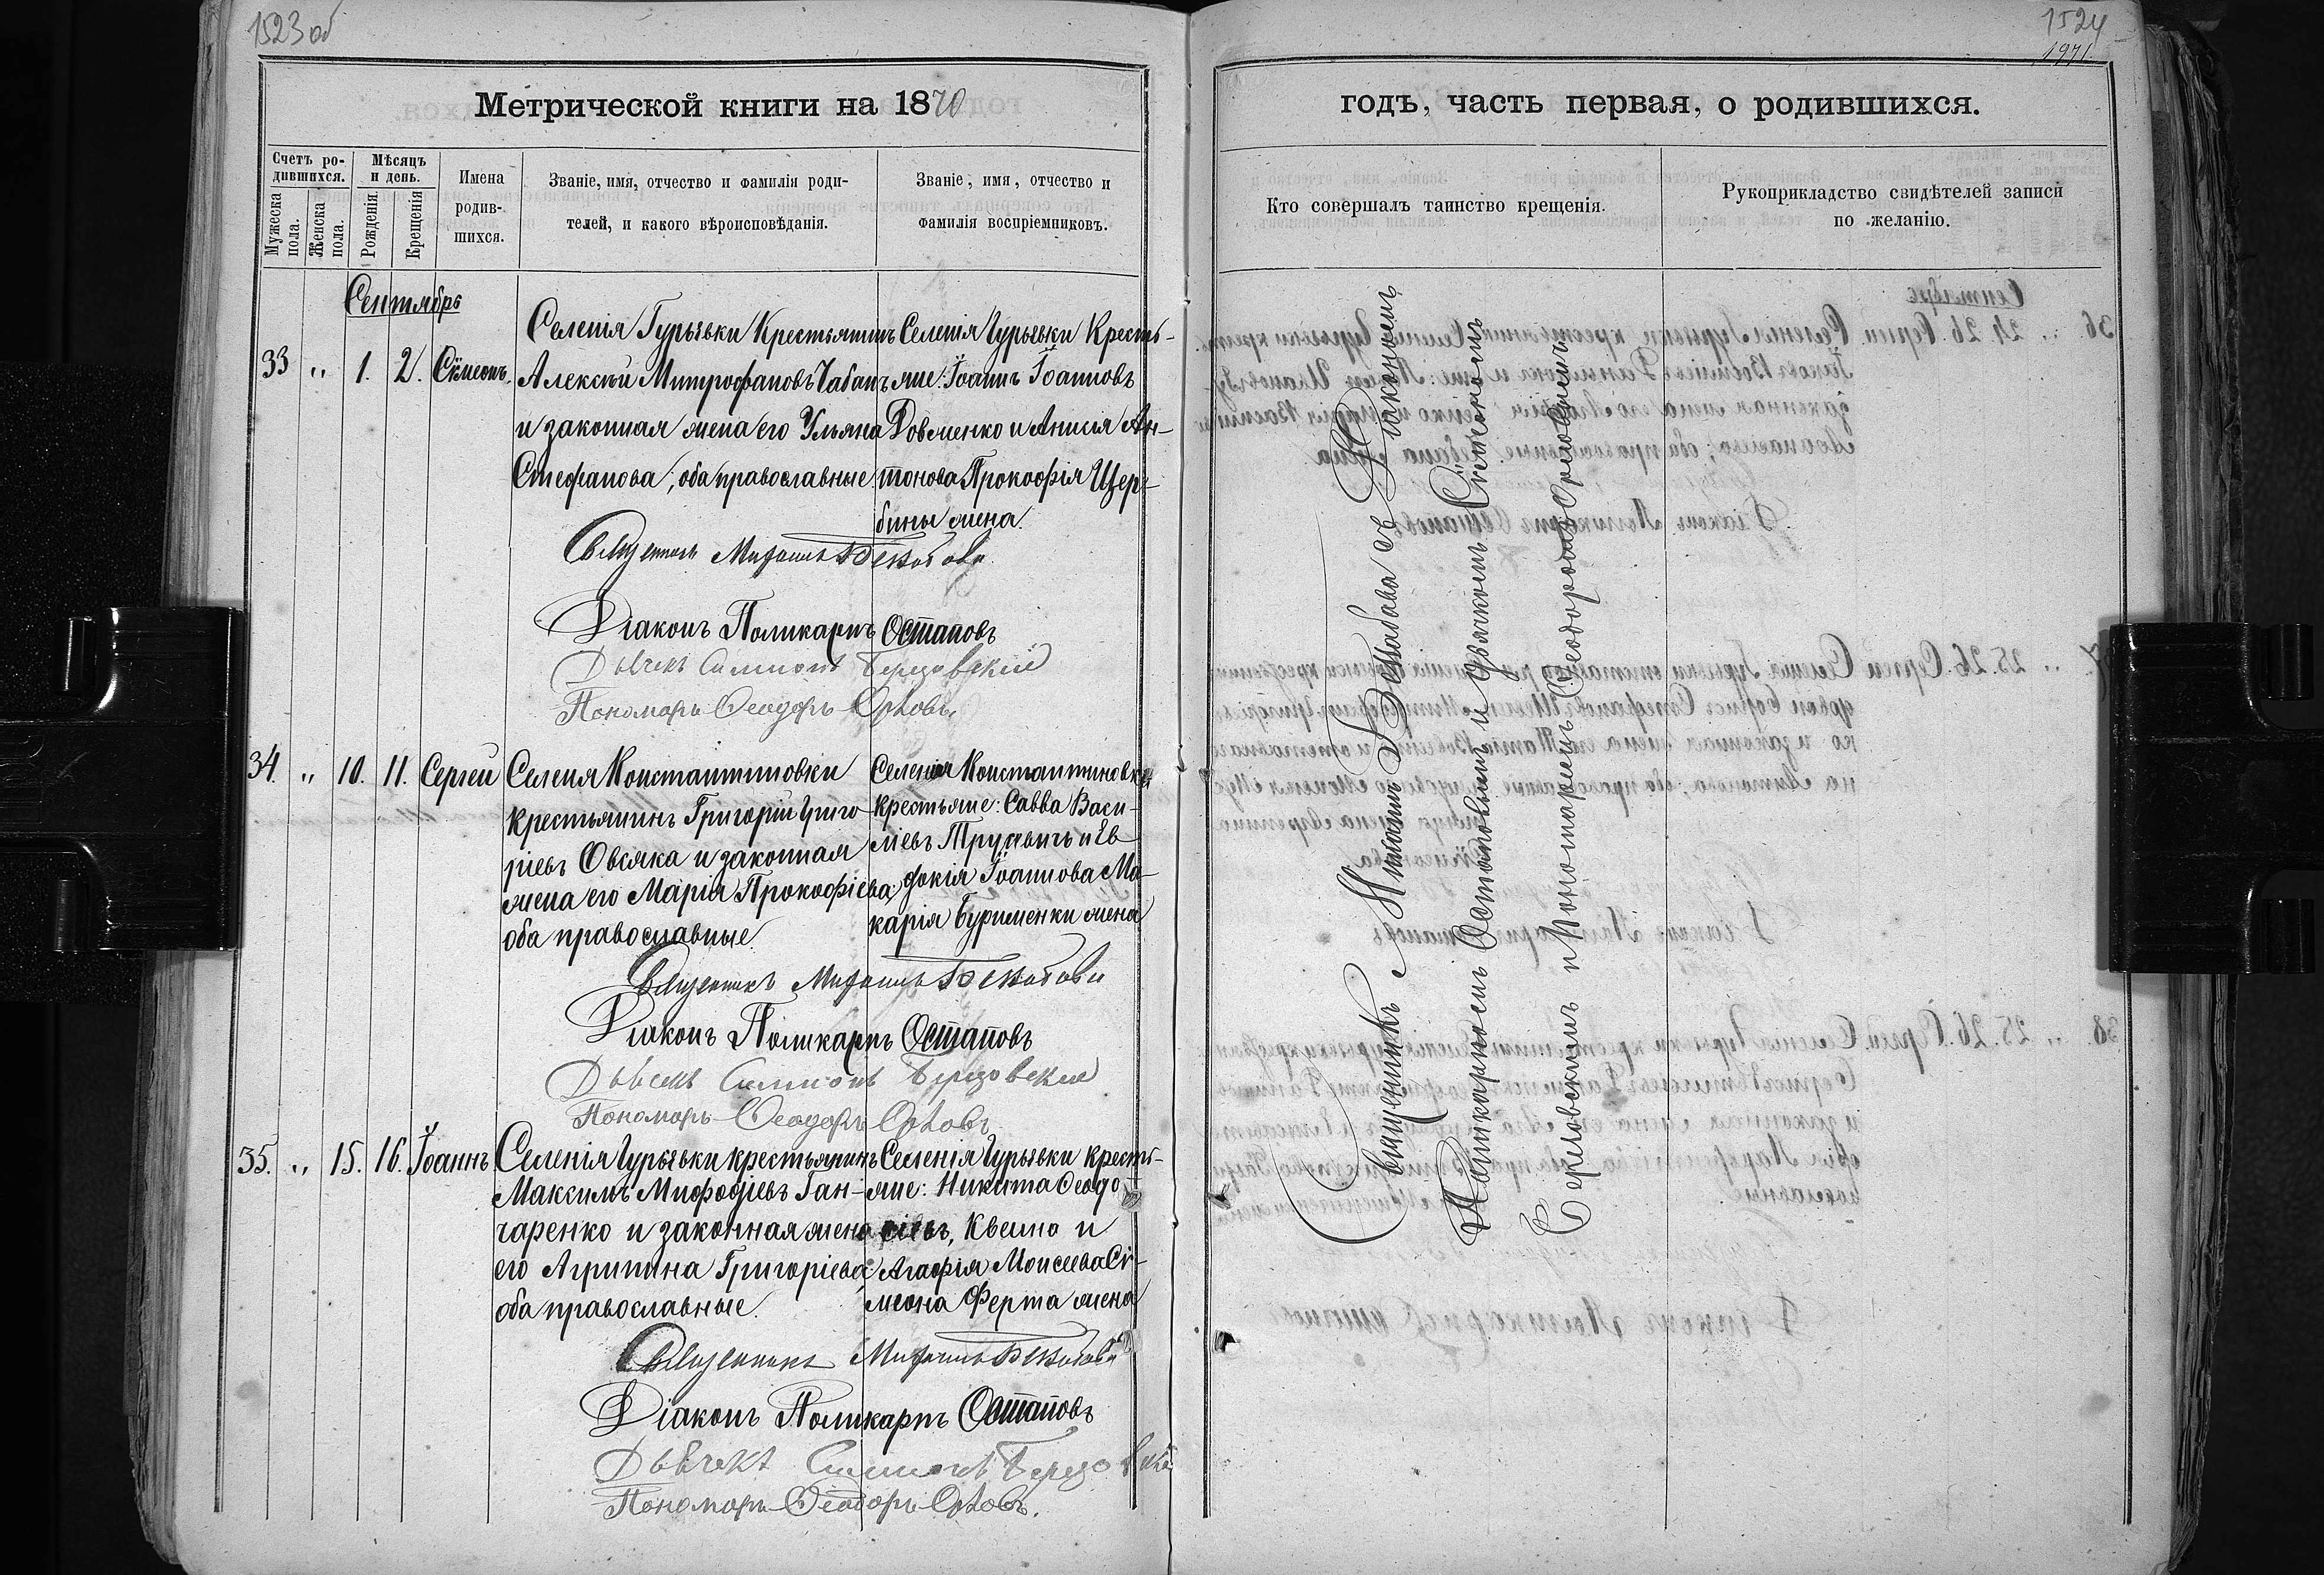 1523 об
Метрической книги на 1870
Счетъ ро-
дившихся.
Мужеска пола.
Женска пола.
Мѣсяцъ
и день.
Рожденія
Крещенія
Имена
родив-
шихся.
Званіе, имя, отчество и фамилія роди-
телей, и какого вѣроисповѣданія.
Званіе, имя, отчество и
фамилія воспріемниковъ.
Сентябрь
33 „ 1. 2. Сѵмеонъ.
Селенія Гурьевки Крестьянинъ
Алексѣй Митрофановъ Чабанъ
и законная жена его Ульяна
Стефанова; оба православные.
Селенія Гурьевки Кресть-
яне: Іоаннъ Іоанновъ
Довженко и Анисія Ан-
тонова Прокофія Щер-
бины жена.
Священникъ Михаилъ
Діаконъ Поликарпъ Остаповъ
Дьячекъ Симеонъ Березовскій
Пономарь Ѳеодоръ Орловъ.
34. „ 10. 11. Сергей
Селенія Константиновки
крестьянинъ Григорій Григо-
ріевъ Овсяка и законная
жена его Марія Прокофіева;
оба православные.
Селенія Константиновки
крестьяне: Савва Васи-
ліевъ и Ев-
докія Іоаннова Ма-
карія Бурименки жена
Священникъ Михаилъ
Діаконъ Поликарпъ Остаповъ
Дьячекъ Симеонъ Березовскій
Пономарь Ѳеодоръ Орловъ.
35. „ 15. 16. Іоаннъ.
Селенія Гурьевки крестьянинъ
Максимъ Мефодіевъ Ган-
чаренко и законная жена
его Агрипина Григоріева
оба православные.
Селенія Гурьевки кресть-
яне: Никита Ѳеодо-
сіевъ, Квешо и
Агафія Моисеева Сѵ-
меона Ферта жена
Священникъ Михаилъ
Діаконъ Поликарпъ Остаповъ
Дьячекъ Симеонъ Березовскій
Пономарь Ѳеодоръ Орловъ.
1524
1971.
годъ, часть первая, о родившихся.
Кто совершалъ таинство крещенія.
Рукоприкладство свидѣтелей записи
по желанію.
Священникъ Михаилъ съ Діакономъ
Поликарпомъ Остаповымъ и дьячкомъ Сѵмеономъ
Березовскимъ и Пономаремъ Ѳеодоромъ Орловымъ